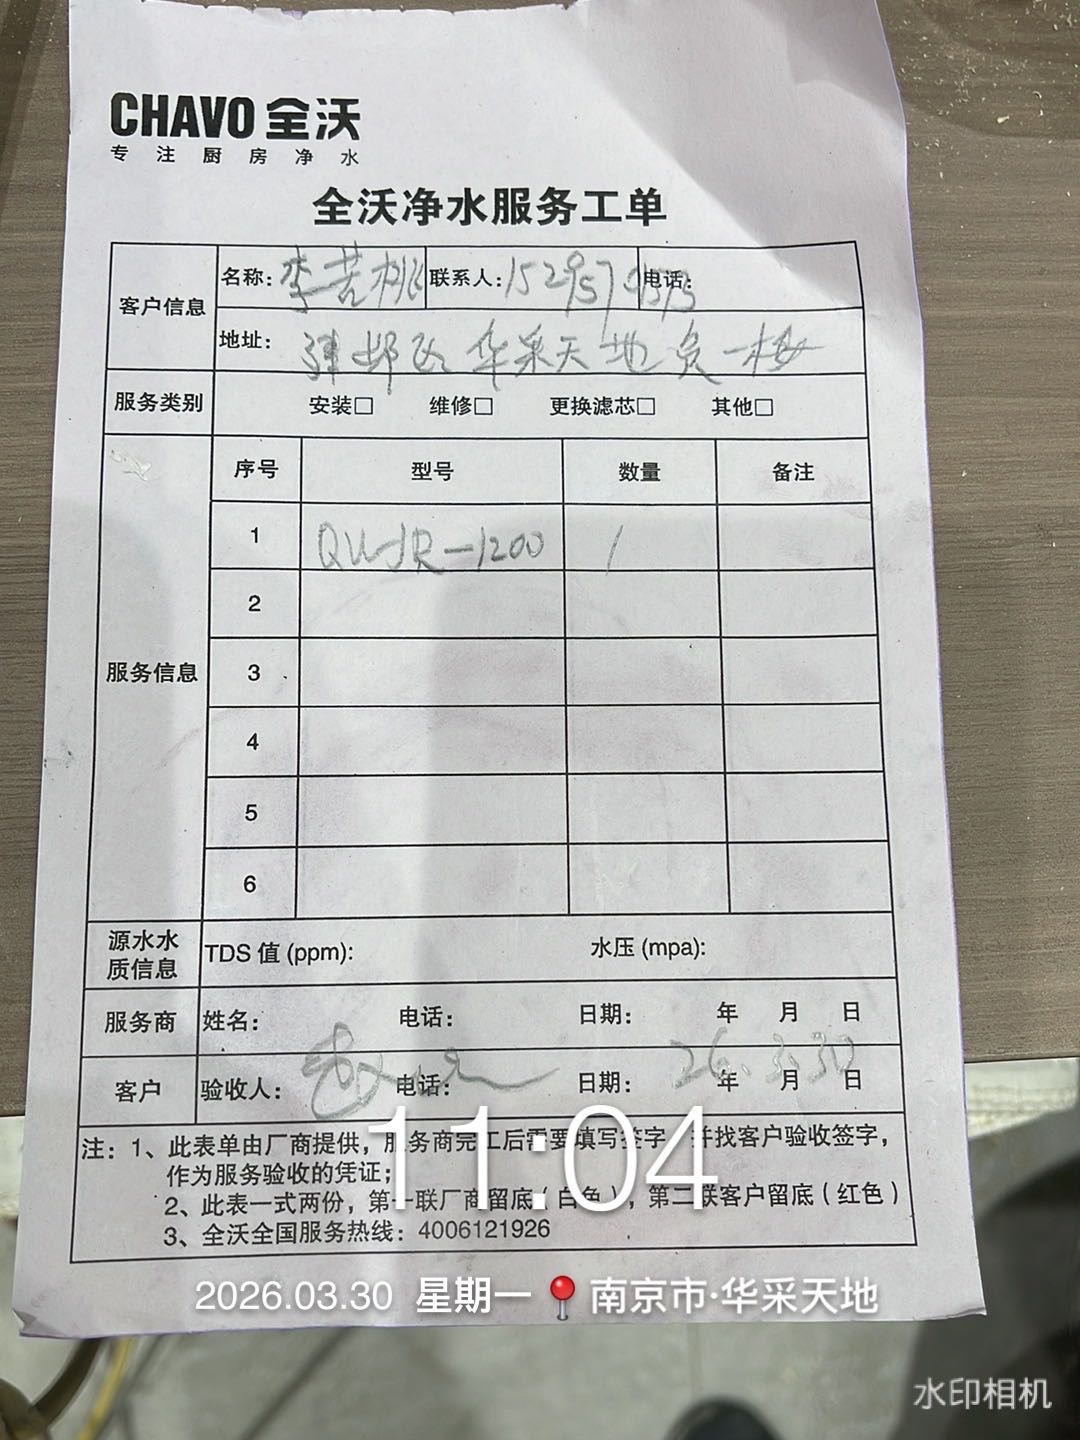 CHAVO 全沃
专注厨房净水
全沃净水服务工单
客户信息 名称: 李苦桃 联系人: 电话:
地址: 建邺区华采天地负一楼
服务类别 安装□ 维修□ 更换滤芯□ 其他□
服务信息
序号 型号 数量 备注
1 1
2
3
4
5
6
源水水质信息 TDS 值 (ppm): 水压 (mpa):
服务商 姓名: 电话: 日期: 年 月 日
客户 验收人: 电话: 日期: 26.3.30 年 月 日
注: 1、此表单由厂商提供，服务商完工后需要填写签字，并找客户验收签字，
作为服务验收的凭证；
2、此表一式两份，第一联厂商留底（白色），第二联客户留底（红色）
3、全沃全国服务热线：4006121926
11:04
2026.03.30 星期一 南京市·华采天地
水印相机